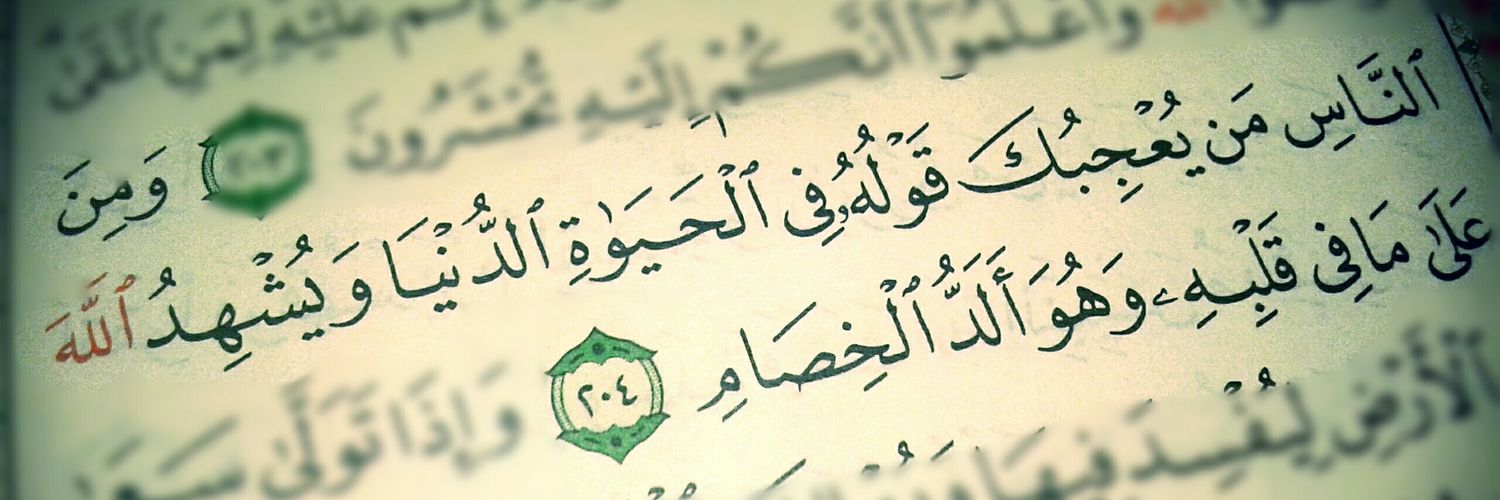 عليه لمن اتقى
الله واعلموا أنكم إليه تحشرون ٢٠٣ وَمِنَ
ٱلنَّاسِ مَن يُعْجِبُكَ قَوْلُهُۥ فِى ٱلْحَيَوٰةِ ٱلدُّنْيَا وَيُشْهِدُ ٱللَّهَ
عَلَىٰ مَا فِى قَلْبِهِۦ وَهُوَ أَلَدُّ ٱلْخِصَامِ ٢٠٤ وَإِذَا تَوَلَّىٰ سَعَىٰ
ٱلْأَرْضِ لِيُفْسِدَ فِيهَا